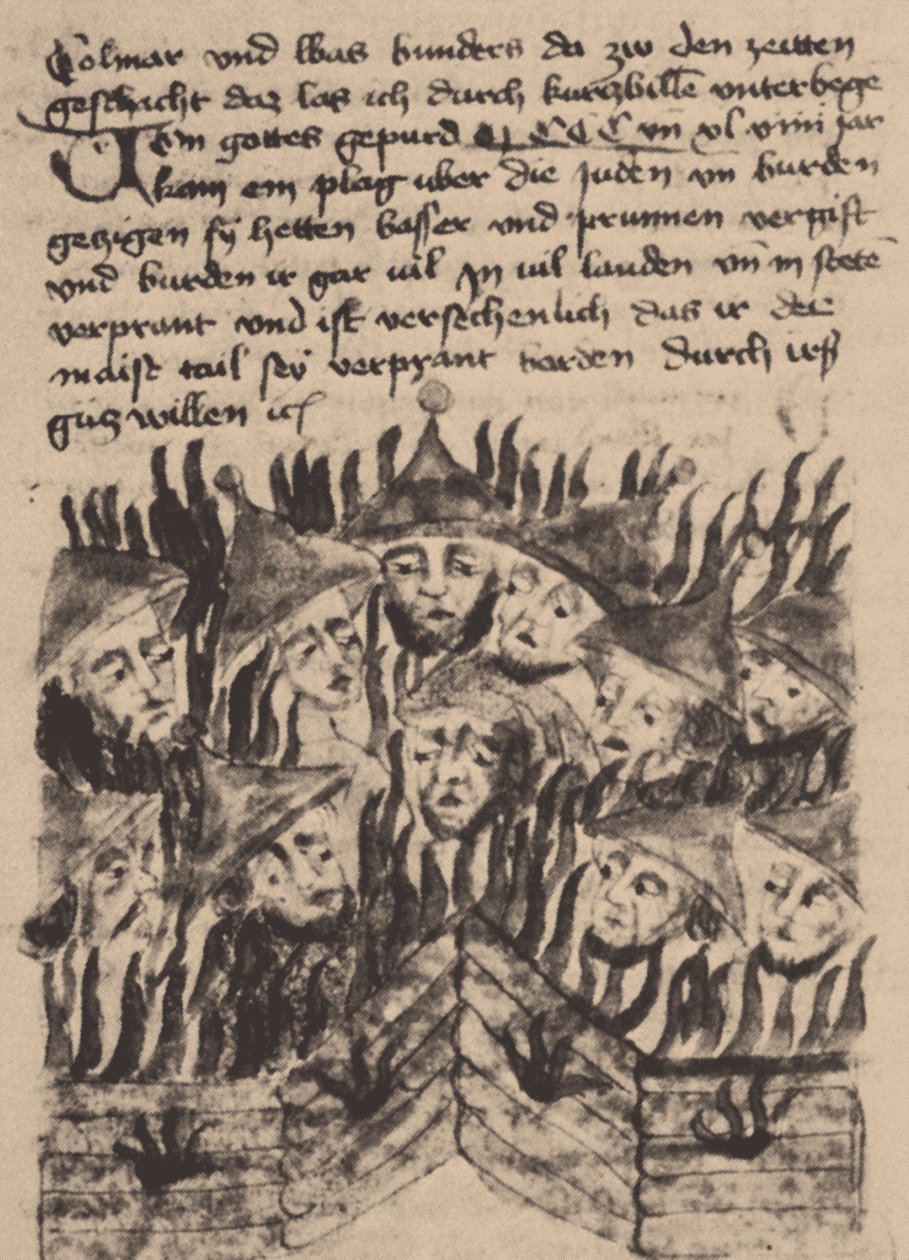 Colmar vnd was wunders da zw den zeitten
geschicht daz las ich durch kurczwille vnterwege
Am gottes gepurd M CCC vn xl viiii jar
kam ein plag uber die Juden vn wurden
gezigen sy hetten wasser vnd prunnen vergift
vnd wurden ir gar uil Jn uil landen vn in stete
verprant vnd ist versechenlich das ir der
maist tail sey verprant worden durch irß
gutz willen